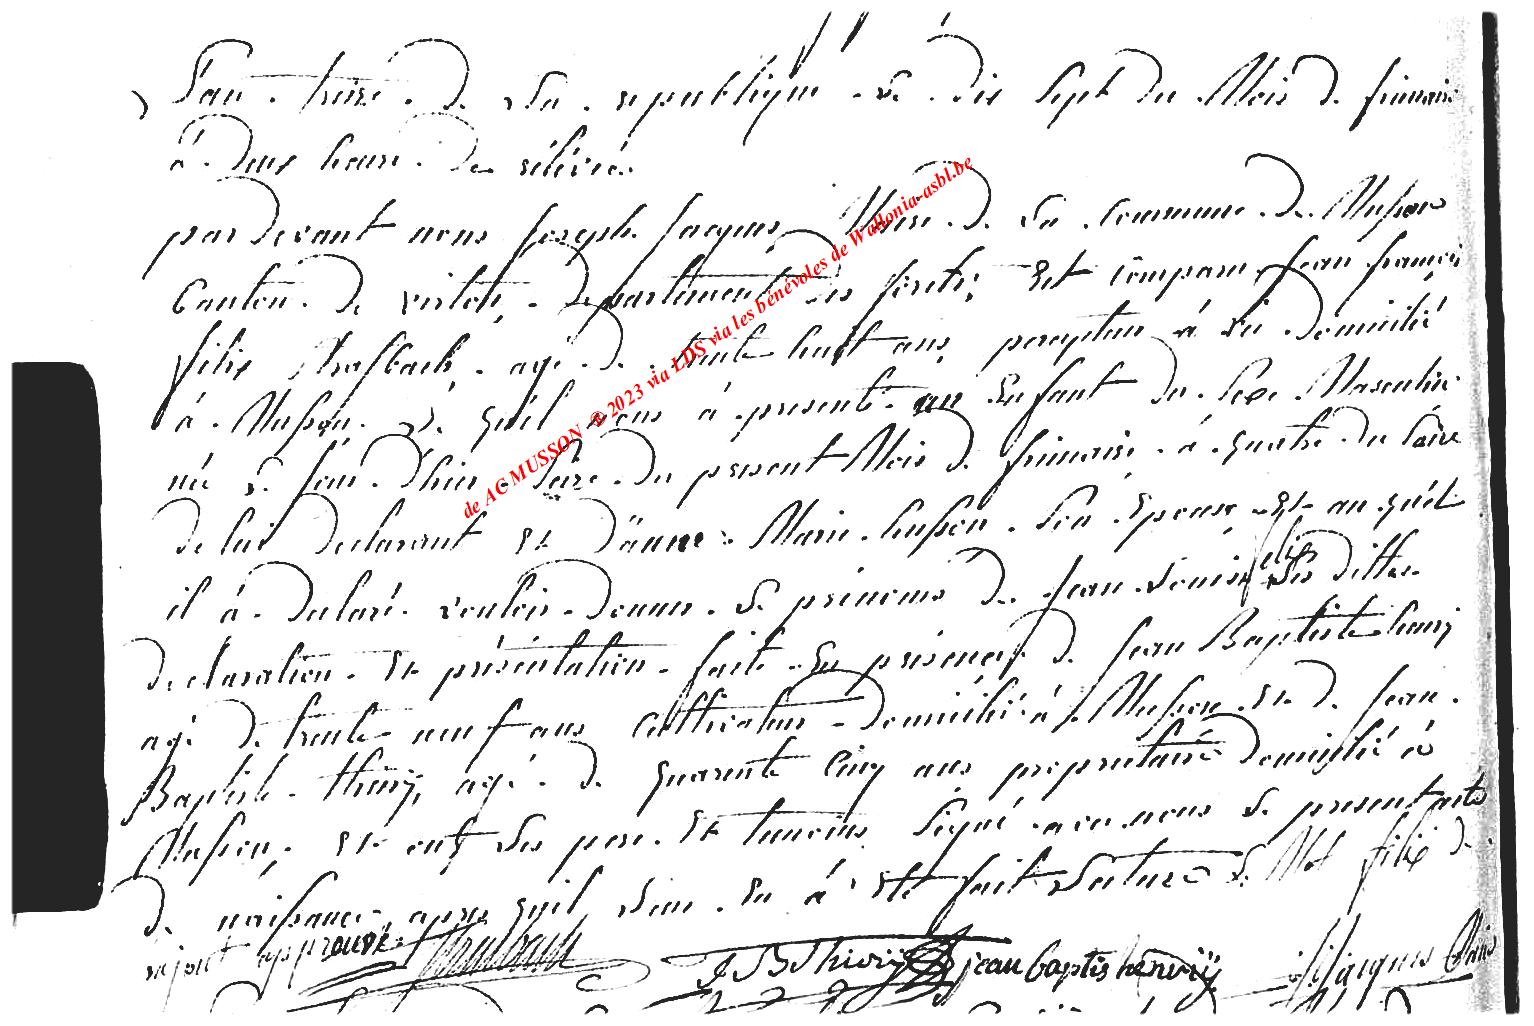 L'an treize de la republique le dix sept du Mois de frimaire
à deux heure de relevée
par devant nous Joseph Jacques Maire de la commune de Musson
Canton de virton, departement des forêts; Est comparu Jean françois
felix age de trente huit ans, percepteur à vie domicilié
à Musson. Le quil nous à presenté un Enfant du sexe Masculin
né le jour d'hier seize du present Mois de frimaire à quatre du soire
de lui declarant et D'änne Marie husson son Epouse, Et au quél
il à declaré vouloir donner le prénoms de Jean Louis felix Les dittes
declaration Et présentation faite En présence de Jean Baptiste henrj
agé De trente neuf ans Cultivateur domicilié à Musson Et de Jean
Baptiste thierÿ, agé de quarente Cinq ans propriétaire Domicilié à
Musson, Et ont les pere Et temoins Signé avec nous le present acte
de naissance, apres quil leur En à Eté fait Lecture Le Mot felix de
rajout approuvé
JBThierÿ jean baptis henrÿ JJacques Maire
de AG MUSSON ® 2023 via LDS via les bénévoles de Wallonia-asbl.be